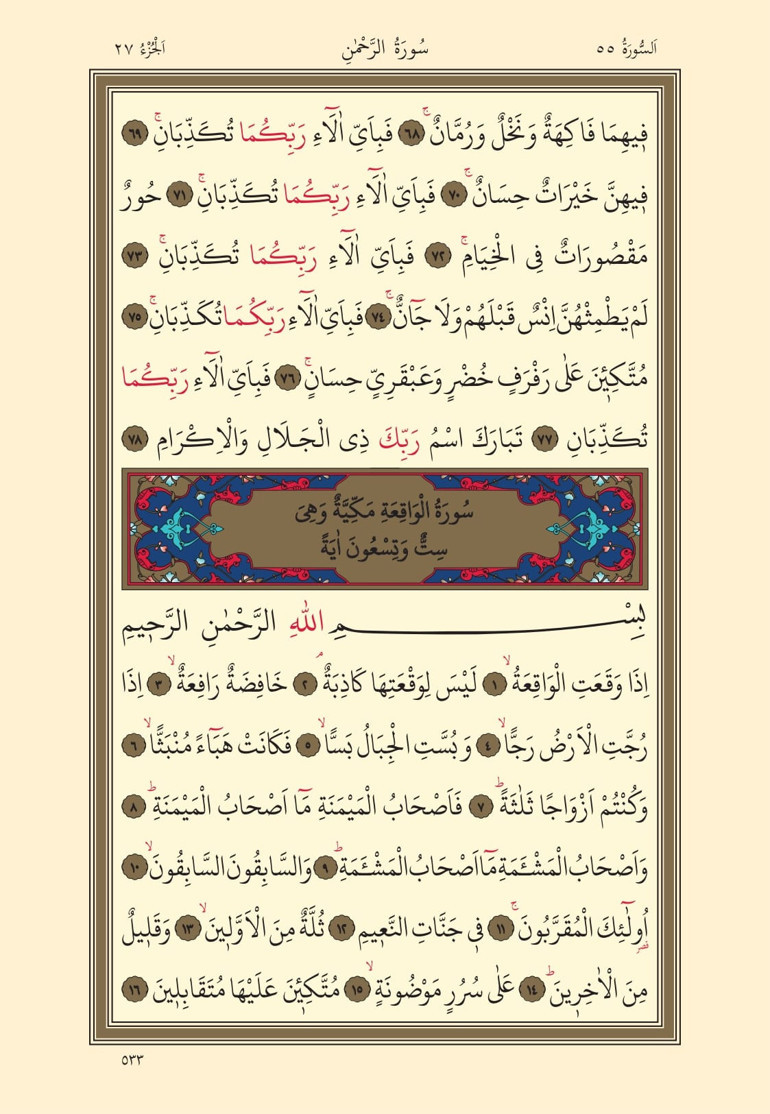 اَلسُّورَةُ ٥٥ سُورَةُ الرَّحْمٰنِ اَلْجُزْءُ ٢٧
ف۪يهِمَا فَاكِهَةٌ وَنَخْلٌ وَرُمَّانٌۚ ﴿٦٨﴾ فَبِاَيِّ اٰلَٓاءِ رَبِّكُمَا تُكَذِّبَانِۚ ﴿٦٩﴾
ف۪يهِنَّ خَيْرَاتٌ حِسَانٌۚ ﴿٧٠﴾ فَبِاَيِّ اٰلَٓاءِ رَبِّكُمَا تُكَذِّبَانِۚ ﴿٧١﴾ حُورٌ
مَقْصُورَاتٌ فِي الْخِيَامِۚ ﴿٧٢﴾ فَبِاَيِّ اٰلَٓاءِ رَبِّكُمَا تُكَذِّبَانِۚ ﴿٧٣﴾
لَمْ يَطْمِثْهُنَّ اِنْسٌ قَبْلَهُمْ وَلَا جَٓانٌّۚ ﴿٧٤﴾ فَبِاَيِّ اٰلَٓاءِ رَبِّكُمَا تُكَذِّبَانِۚ ﴿٧٥﴾
مُتَّكِـ۪ٔينَ عَلٰى رَفْرَفٍ خُضْرٍ وَعَبْقَرِيٍّ حِسَانٍۚ ﴿٧٦﴾ فَبِاَيِّ اٰلَٓاءِ رَبِّكُمَا
تُكَذِّبَانِ ﴿٧٧﴾ تَبَارَكَ اسْمُ رَبِّكَ ذِي الْجَلَالِ وَالْاِكْرَامِ ﴿٧٨﴾
سُورَةُ الْوَاقِعَةِ مَكِّيَّةٌ وَهِيَ
سِتٌّ وَتِسْعُونَ اٰيَةً
بِسْمِ اللّٰهِ الرَّحْمٰنِ الرَّح۪يمِ
اِذَا وَقَعَتِ الْوَاقِعَةُۙ ﴿١﴾ لَيْسَ لِوَقْعَتِهَا كَاذِبَةٌۢ ﴿٢﴾ خَافِضَةٌ رَافِعَةٌۙ ﴿٣﴾ اِذَا
رُجَّتِ الْاَرْضُ رَجًّاۙ ﴿٤﴾ وَبُسَّتِ الْجِبَالُ بَسًّاۙ ﴿٥﴾ فَكَانَتْ هَبَٓاءً مُنْبَثًّاۙ ﴿٦﴾
وَكُنْتُمْ اَزْوَاجًا ثَلٰثَةًۜ ﴿٧﴾ فَاَصْحَابُ الْمَيْمَنَةِ مَٓا اَصْحَابُ الْمَيْمَنَةِۜ ﴿٨﴾
وَاَصْحَابُ الْمَشْـَٔمَةِ مَٓا اَصْحَابُ الْمَشْـَٔمَةِۜ ﴿٩﴾ وَالسَّابِقُونَ السَّابِقُونَۙ ﴿١٠﴾
اُو۬لٰٓئِكَ الْمُقَرَّبُونَۚ ﴿١١﴾ ف۪ي جَنَّاتِ النَّع۪يمِ ﴿١٢﴾ ثُلَّةٌ مِنَ الْاَوَّل۪ينَۙ ﴿١٣﴾ وَقَل۪يلٌ
مِنَ الْاٰخِر۪ينَۜ ﴿١٤﴾ عَلٰى سُرُرٍ مَوْضُونَةٍۙ ﴿١٥﴾ مُتَّكِـ۪ٔينَ عَلَيْهَا مُتَقَابِل۪ينَ ﴿١٦﴾
٥٣٣